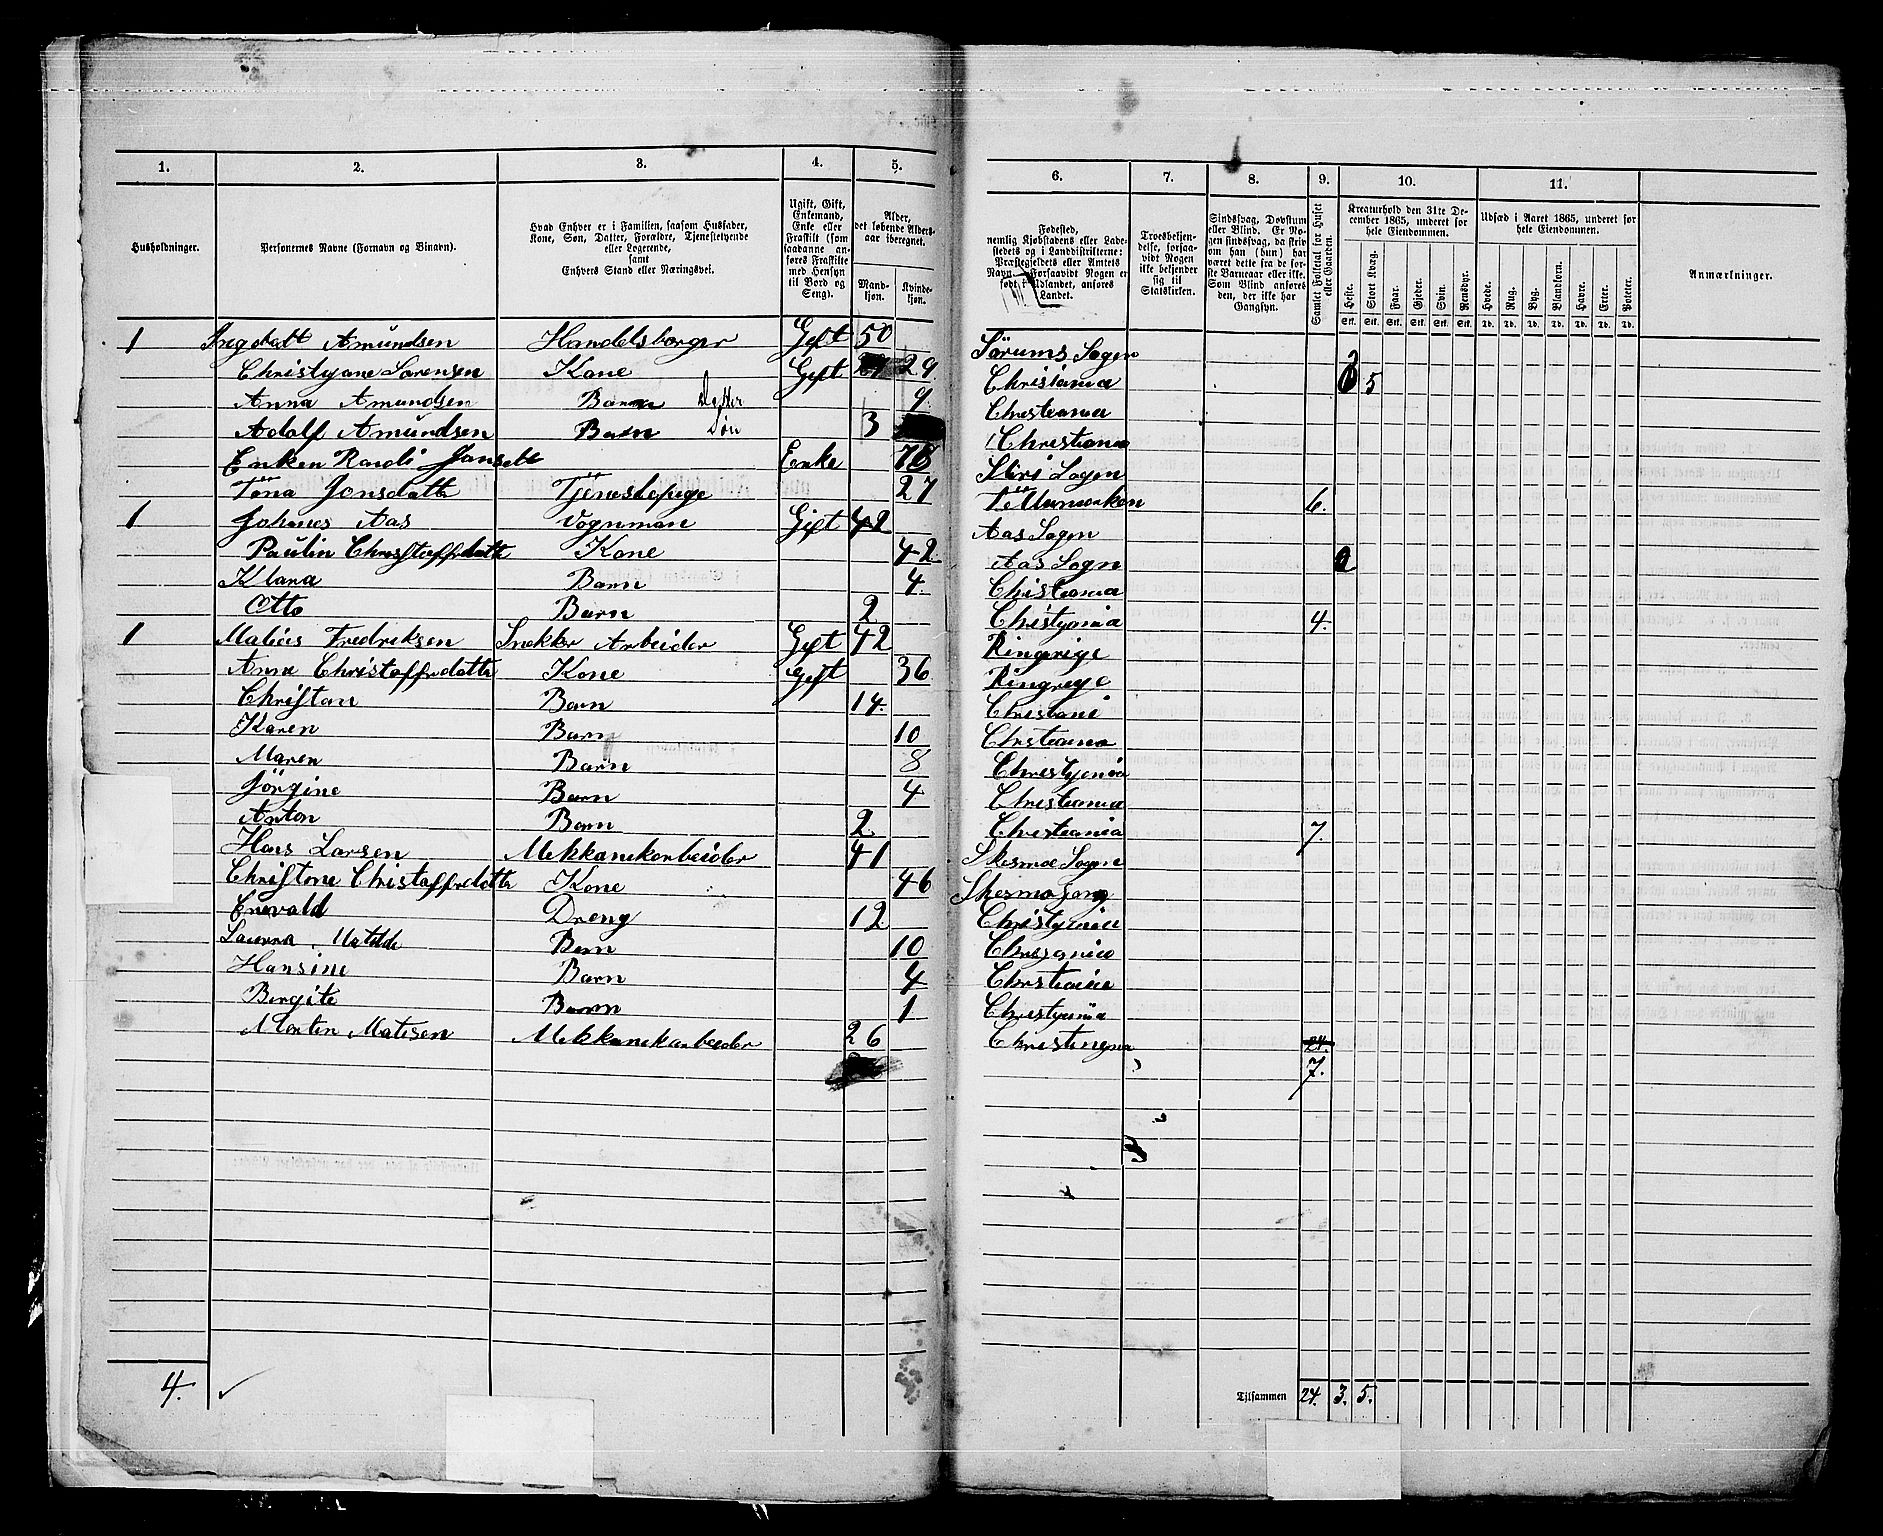 1. 2. 3. 4. 5. 6. 7. 8. 9. 10. 11.
Husholdninger.
Personernes Navne (Fornavn og Binavn).
Hvad Enhver er i Familien, saasom Husfader, Kone, Søn, Datter, Forældre, Tjenestetyende eller Logerende, samt Enhvers Stand eller Næringsvei.
Ugift, Gift, Enkemand, Enke eller Fraskilt (som saadanne anføres Fraskilte med Hensyn til Bord og Seng).
Alder, det løbende Aldersaar iberegnet.
Mandkjøn. Kvindekjøn.
Fødested, nemlig Kjøbstadens eller Ladestedets og i Landdistrikterne: Præstegjeldets eller Amtets Navn. Forsaavidt Nogen er født i Udlandet, anføres Landet.
Troesbekjendelse, forsaavidt Nogen ikke bekjender sig til Statskirken.
Sindssvag, Døvstum eller Blind. Er Nogen sindssvag, da skriv om han (hun) har været dette fra de første Barneaar eller ikke. Som Blind anføres den, der ikke har Gangsyn.
Samlet Folketal for Huset eller Gaarden.
Kreaturhold den 31te December 1865, underet for hele Eiendommen.
Heste. Stort Kvæg. Faar. Gjeder. Svin. Rensdyr.
Stk. Stk. Stk. Stk. Stk. Stk.
Udsæd i Aaret 1865, underet for hele Eiendommen.
Hvede. Rug. Byg. Blandkorn. Havre. Erter. Poteter.
Td. Td. Td. Td. Td. Td. Td.
Anmærkninger.
1 Amundsen Handelsborger Gift 50 Sörums Sogn
Christyane Sorensen Kone Gift 29 Christiania 5
Anna Amundsen Barn Datter 9 Christiania
Adolf Amundsen Barn Søn 3 Christiania
Enken Randi Enke Skiri Sogn
Tena Jonsdatte Tjenestepige 27 6.
1 Johanes Aas Vognman Gift 42 Aas Sogn
Paulin Christoffrdatte Kone 42 Aas Sogn
Klara Barn 4. Christiania
Otto Barn 2 Christyania 4.
1 Matias Fredriksen Snekker Arbeider Gift 42 Ringrige
Anne Christoffrdatte Kone Gift 36 Ringrige
Christan Barn 14. Christiani
Karen Barn 10 Christiania
Maren Barn 8 Christyenia
Jörgine Barn 4 Christiania
Anton Barn 2. Christiania 7.
Hans Larsen Mekkanekarbeider 41 Skesmoe Sogn
Christone Christoffredatte Kone 46 Skesmo Song
Enevald Dreng 12 Christyania
Laurra Matilde Barn 10
Hansine Barn 4 Christiania
Bergite Barn 1 Christyania
Morten Matisen Mekkanekarbeider 26 24.
7.
4. Tilsammen 24. 3. 5.